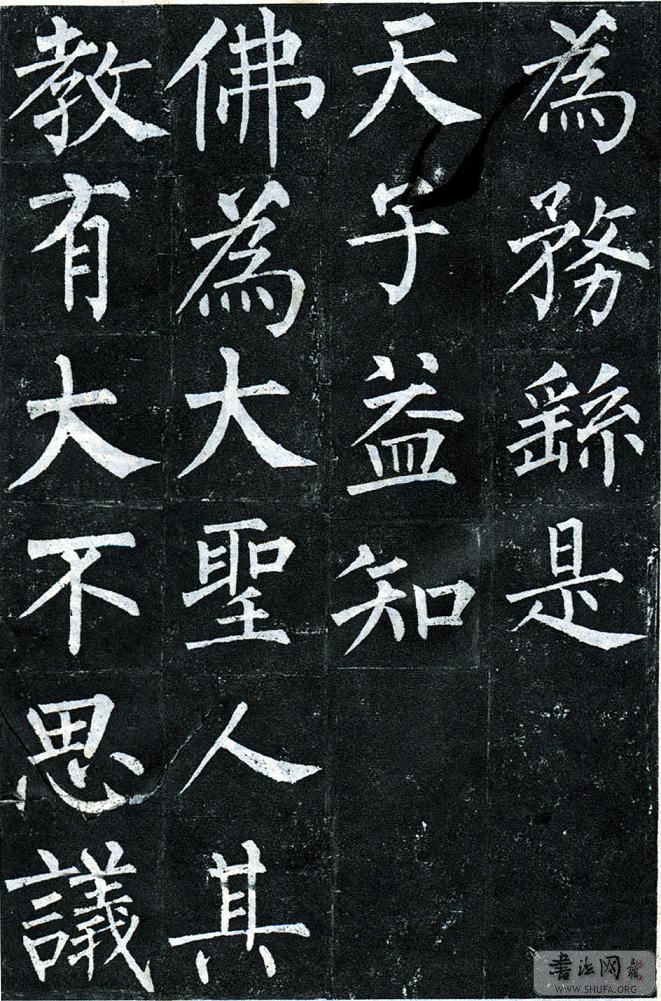 為務繇是
天子益知
佛為大聖人其
教有大不思議
書法网
WWW.SHUFA.ORG